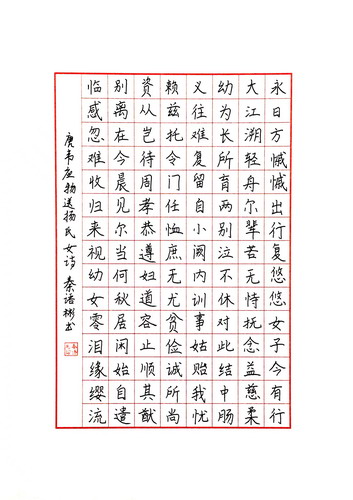 永日方慽慽出行复悠悠女子今有行
大江溯轻舟尔辈苦无恃抚念益慈柔
幼为长所育两别泣不休对此结中肠
义往难复留自小阙内训事姑贻我忧
赖兹托令门任恤庶无尤贫俭诚所尚
资从岂待周孝恭遵妇道容止顺其猷
别离在今晨见尔当何秋居闲始自遣
临感忽难收归来视幼女零泪缘缨流
唐韦应物送杨氏女诗 秦语彬书